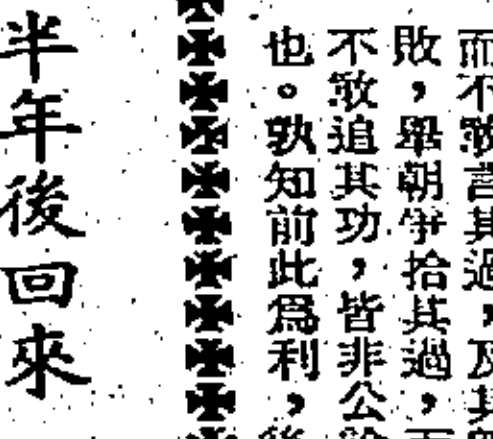 而不敢言其過，及其
敗，舉朝爭拾其過，而
不敢追其功，皆非公論
也。孰知前此爲利，後
半年後回來